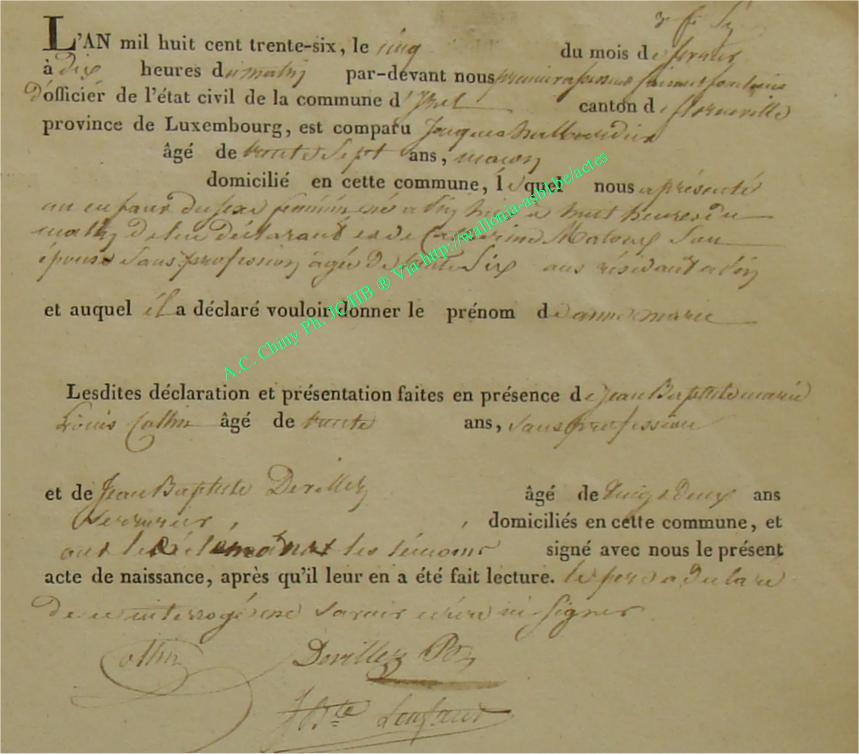 L'AN mil huit cent trente-six, le cinq du mois de fevrier
à dix heures du matin par-devant nous
d'officier de l'état civil de la commune d' Izel canton de florenville
province de Luxembourg, est comparu Jacques
âgé de trente Sept ans, maçon
domicilié en cette commune, lequel nous a présenté
un enfant du sexe féminin né a huit heures du
matin de lui déclarant et de Catherine Son
épouse Sans profession agée de trente Six ans résidant a
et auquel il a déclaré vouloir donner le prénom de anne marie
Lesdites déclaration et présentation faites en présence de Jean Baptiste marie
Louis Collin âgé de trente ans, Sans profession
et de Jean Baptiste Devillez âgé de Vingt Deux ans
Serrurier domiciliés en cette commune, et
ont les témoins signé avec nous le présent
acte de naissance, après qu'il leur en a été fait lecture. le pere a declaré
de ce interrogé ne savoir ecrire ni signer
Collin Devillez
JBte
A.C. Chiny Ph. ICHB ® Via http://wallonia-asbl.be/actes